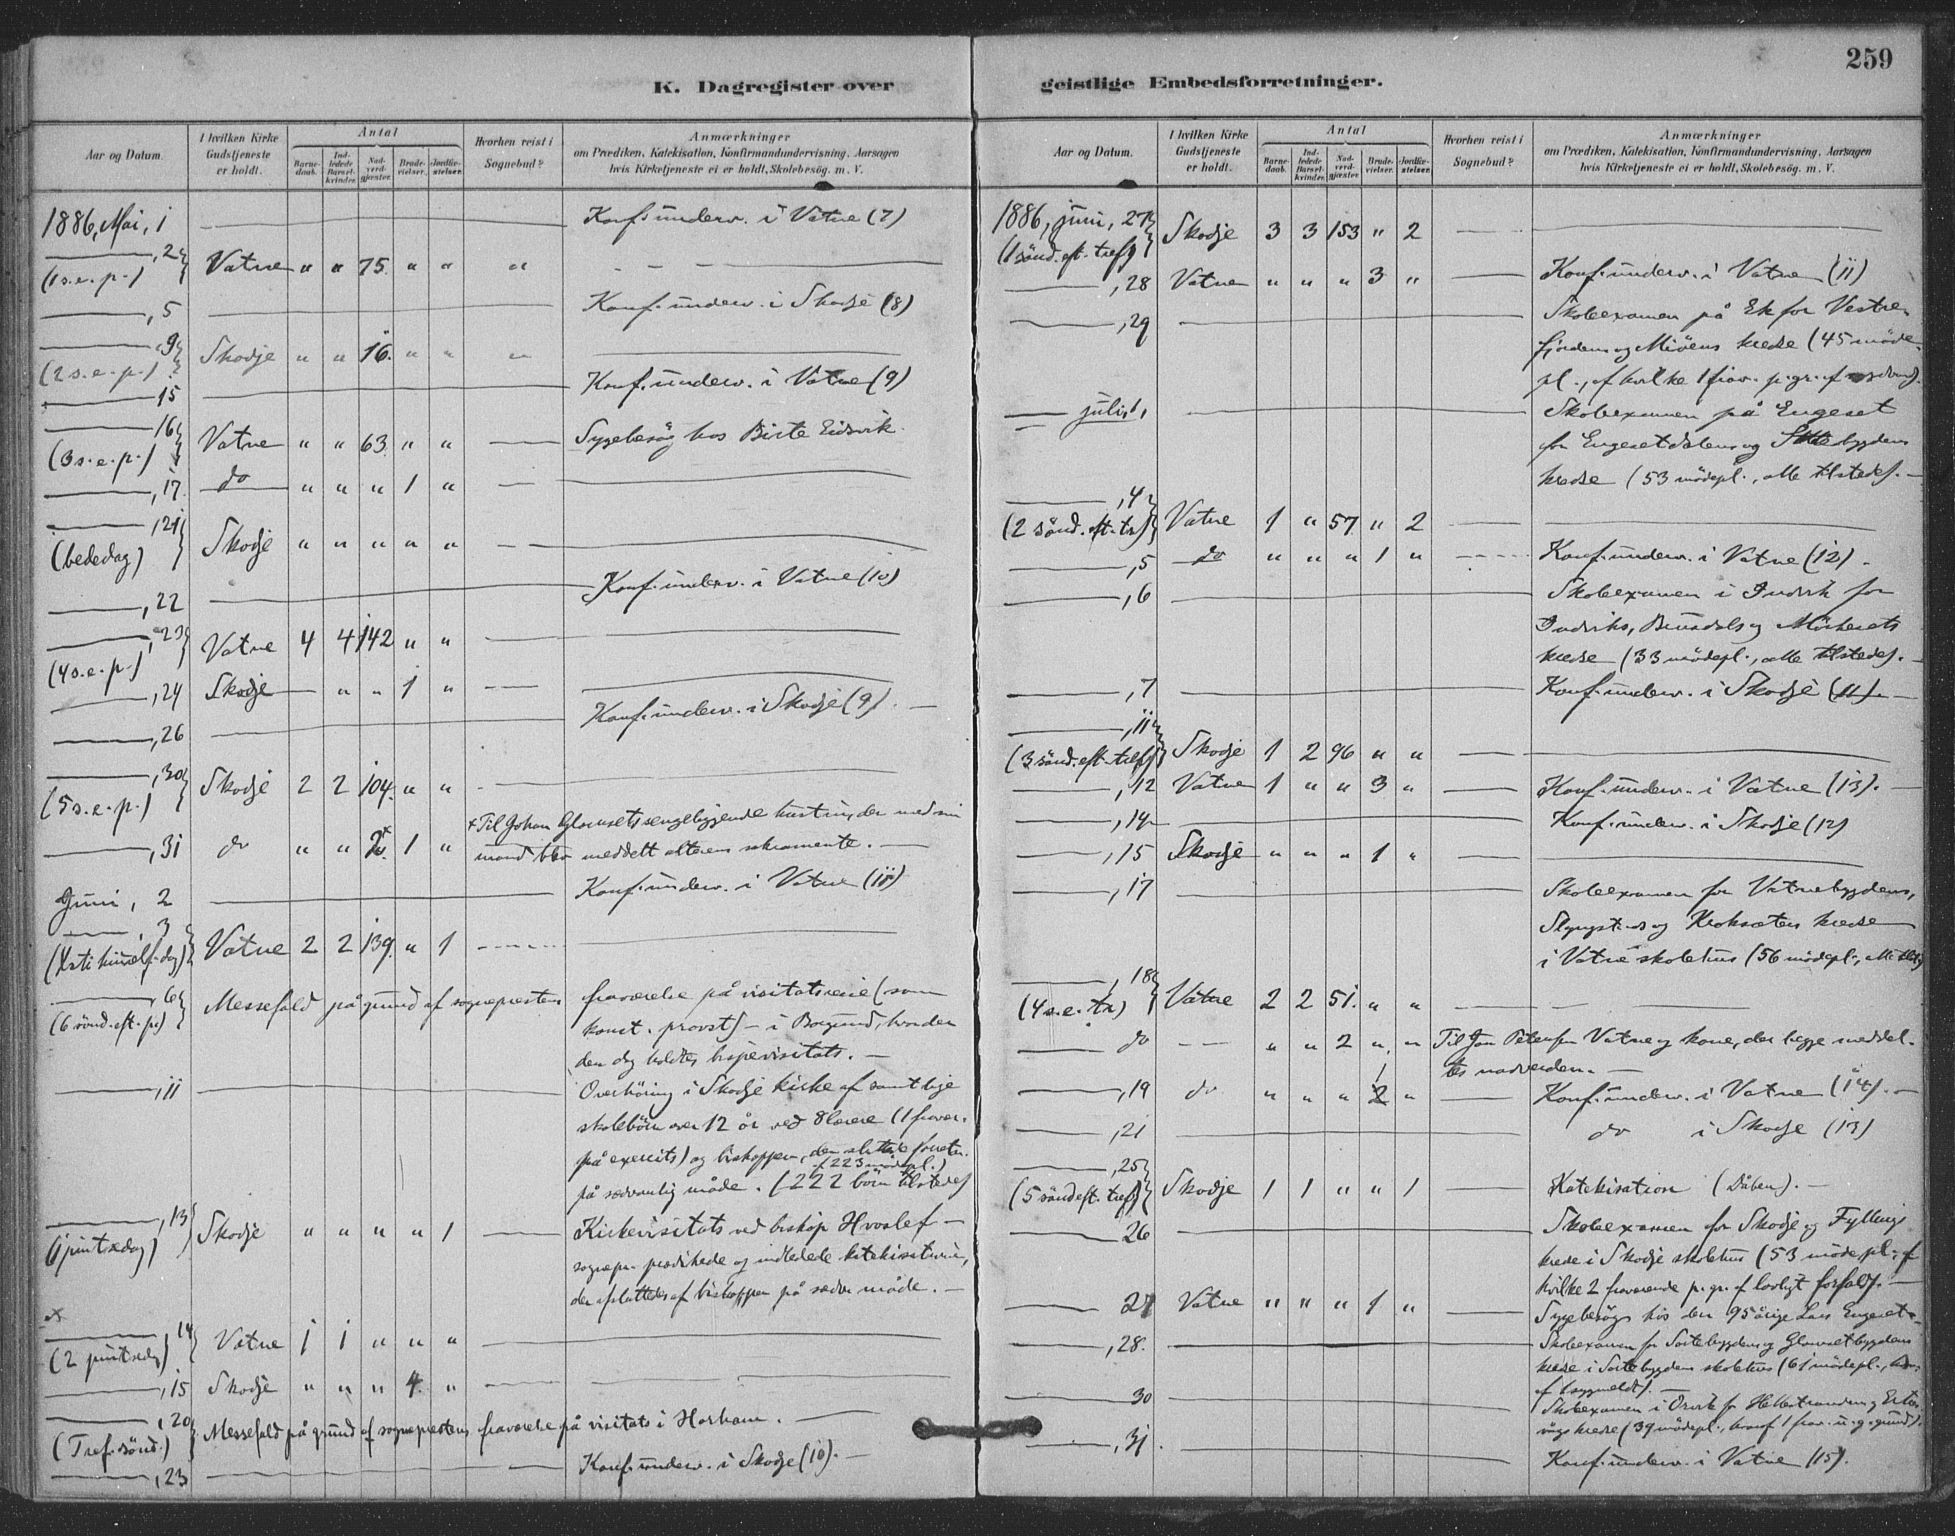 259
K. Dagregister over geistlige Embedsforretninger.
Aar og Datum. I hvilken Kirke Gudstjeneste er holdt. Antal Barnedaab. Indledede Barselkvinder. Nadverdgjæster. Brudevielser. Jordfæstelser. Hvorhen reist i Sognebud? Anmærkninger om Prædiken, Katekisation, Konfirmandundervisning, Aarsagen hvis Kirketjeneste ei er holdt, Skolebesøg. m. V.
1886, Mai, 1 Konf. underv. i Vatne (7)
2 (1 s. e. p.) Vatne " " 75. " " "
, 5 Konf. underv. i Skodje (8)
9 (2 s. e. p.) Skodje " " 16. " " "
15 Konf. underv. i Vatne (9)
16 (3 s. e. p.) Vatne " " 63 " " — Sygebesøg hos Birte Eidsvik.
, 17. do " " " 1 " —
, 21 (bededag) Skodje " " " " " —
, 22 Konf. underv. i Vatne (10)
, 23 (4 s. e. p.) Vatne 4 4 142 " " —
, 24 Skodje — " " 1 " —
, 26 Konf. underv. i Skodje (9). —
, 30 (5 s. e. p.) Skodje 2 2 104. " " —
, 31 do " " 2. 1 " + Til Johan Glomsets sengeliggende hustru, der med sin
mand blev meddelt alterens sakramente. —
Juni, 2 Konf. underv. i Vatne (11)
, 3 (Xsti himelf. dag) Vatne 2 2 139. " 1 —
, 6 (6 sønd. eft. p.) Messefald på grund af sogneprestens fraværelse på visitatsreise (som
konst. provst) – i Borgund, hvor den
den dag holdtes bispevisitats. —
, 11 Overhøring i Skodje kirke af samtlige
skolebørn over 12 år ved 8 lærere (1 fravær.
på exercits) og biskoppen,
(af 223 mødepl.)
på sædvanlig måde. (222 børn tilstede)
, 13 (1 pintsedag) Skodje " " " " 1 — Kirkevisitats ved biskop Hvoslef –
sognepr. prædikede og indledede katekisationen,
der afsluttedes af biskoppen på sædv. måde. —
x
, 14 (2 pintsedag) Vatne 1 1 " " " —
, 15 Skodje " " " 4. " —
, 20 (Tref. sønd.) Messefald på grund af sogneprestens fraværelse på visitats i Harham. —
, 23 Konf. underv. i Skodje (10). —
Aar og Datum. I hvilken Kirke Gudstjeneste er holdt. Antal Barnedaab. Indledede Barselkvinder. Nadverdgjæster. Brudevielser. Jordfæstelser. Hvorhen reist i Sognebud? Anmærkninger om Prædiken, Katekisation, Konfirmandundervisning, Aarsagen hvis Kirketjeneste ei er holdt, Skolebesøg. m. V.
1886, juni, 27 (1 sønd. eft. tref.) Skodje 3 3 153 " 2 —
, 28 Vatne " " " 3 " — Konf. underv. i Vatne (11)
, 29 Skoleexamen på Ek for Vestre-
fjordens og Midens kredse (45 møde-
pl., af hvilke 1 frav. p. gr. af
juli, 1, Skoleexamen på Engeset
for Engesetdalens og bygdens
kredse (53 mødepl., alle tilstede). —
, 4 (2 sønd. eft. tr.) Vatne 1 " 57 " 2 —
, 5 do " " " 1 " — Konf. underv. i Vatne (12). —
, 6 Skoleexamen i for
Brusdals og
kredse (33 mødepl., alle tilstede). —
, 7 Konf. underv. i Skodje (11). —
, 11 (3 sønd. eft. tref.) Skodje 1 2 96 " " —
, 12 Vatne 1 " " 3 " — Konf. underv. i Vatne (13). —
, 14 Konf. underv. i Skodje (12)
, 15 Skodje " " " 1 " —
, 17 Skoleexamen for Vatnebygdens,
Slyngstads og Kroksætens kredse
i Vatne skolehus (56 mødepl., alle tilst.)
, 18 (4 s. e. tr.) Vatne 2 2 51. " " —
do — " " 2 " " Til Jon Petersen Vatne og kone, der begge meddel-
tes nadverden. —
, 19 do " " " 2 " — Konf. underv. i Vatne (14). —
, 21 do i Skodje (13)
, 25 (5 sønd eft. tref.) Skodje 1 1 " " 1 — Katekisation (Dåben). —
26 Skoleexamen for Skodje og Fyllings
kredse i Skodje skolehus (53 mødepl. af
hvilke 2 fraværende p. gr. af lovligt forfald). —
27 Vatne " " " 1 " — Sygebesøg hos den 95 årige Lars Engeset. —
, 28. Skoleexamen for Sortebygdens og Glomsetbygdens
kredse i Sortebygdens skolehus (61 mødepl.,
30 Skoleexamen i Orsvik for Hellestranden og
kredse (39 mødepl., hvoraf 1 frav. u. g. grund).
, 31 Konf. underv. i Vatne (15).